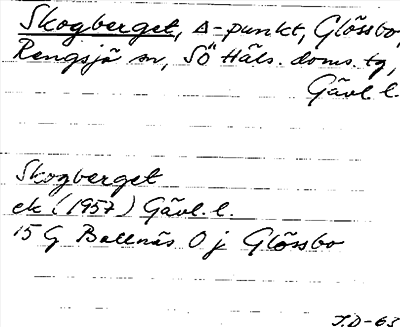 Skogberget, Δ-punkt, Glössbo,
Rengsjö sn, SÖ Häls. doms. tg,
Gävl. l.
Skogberget
ek (1957) Gävl. l.
15 G Bollnäs 0 j Glössbo
J.D-63